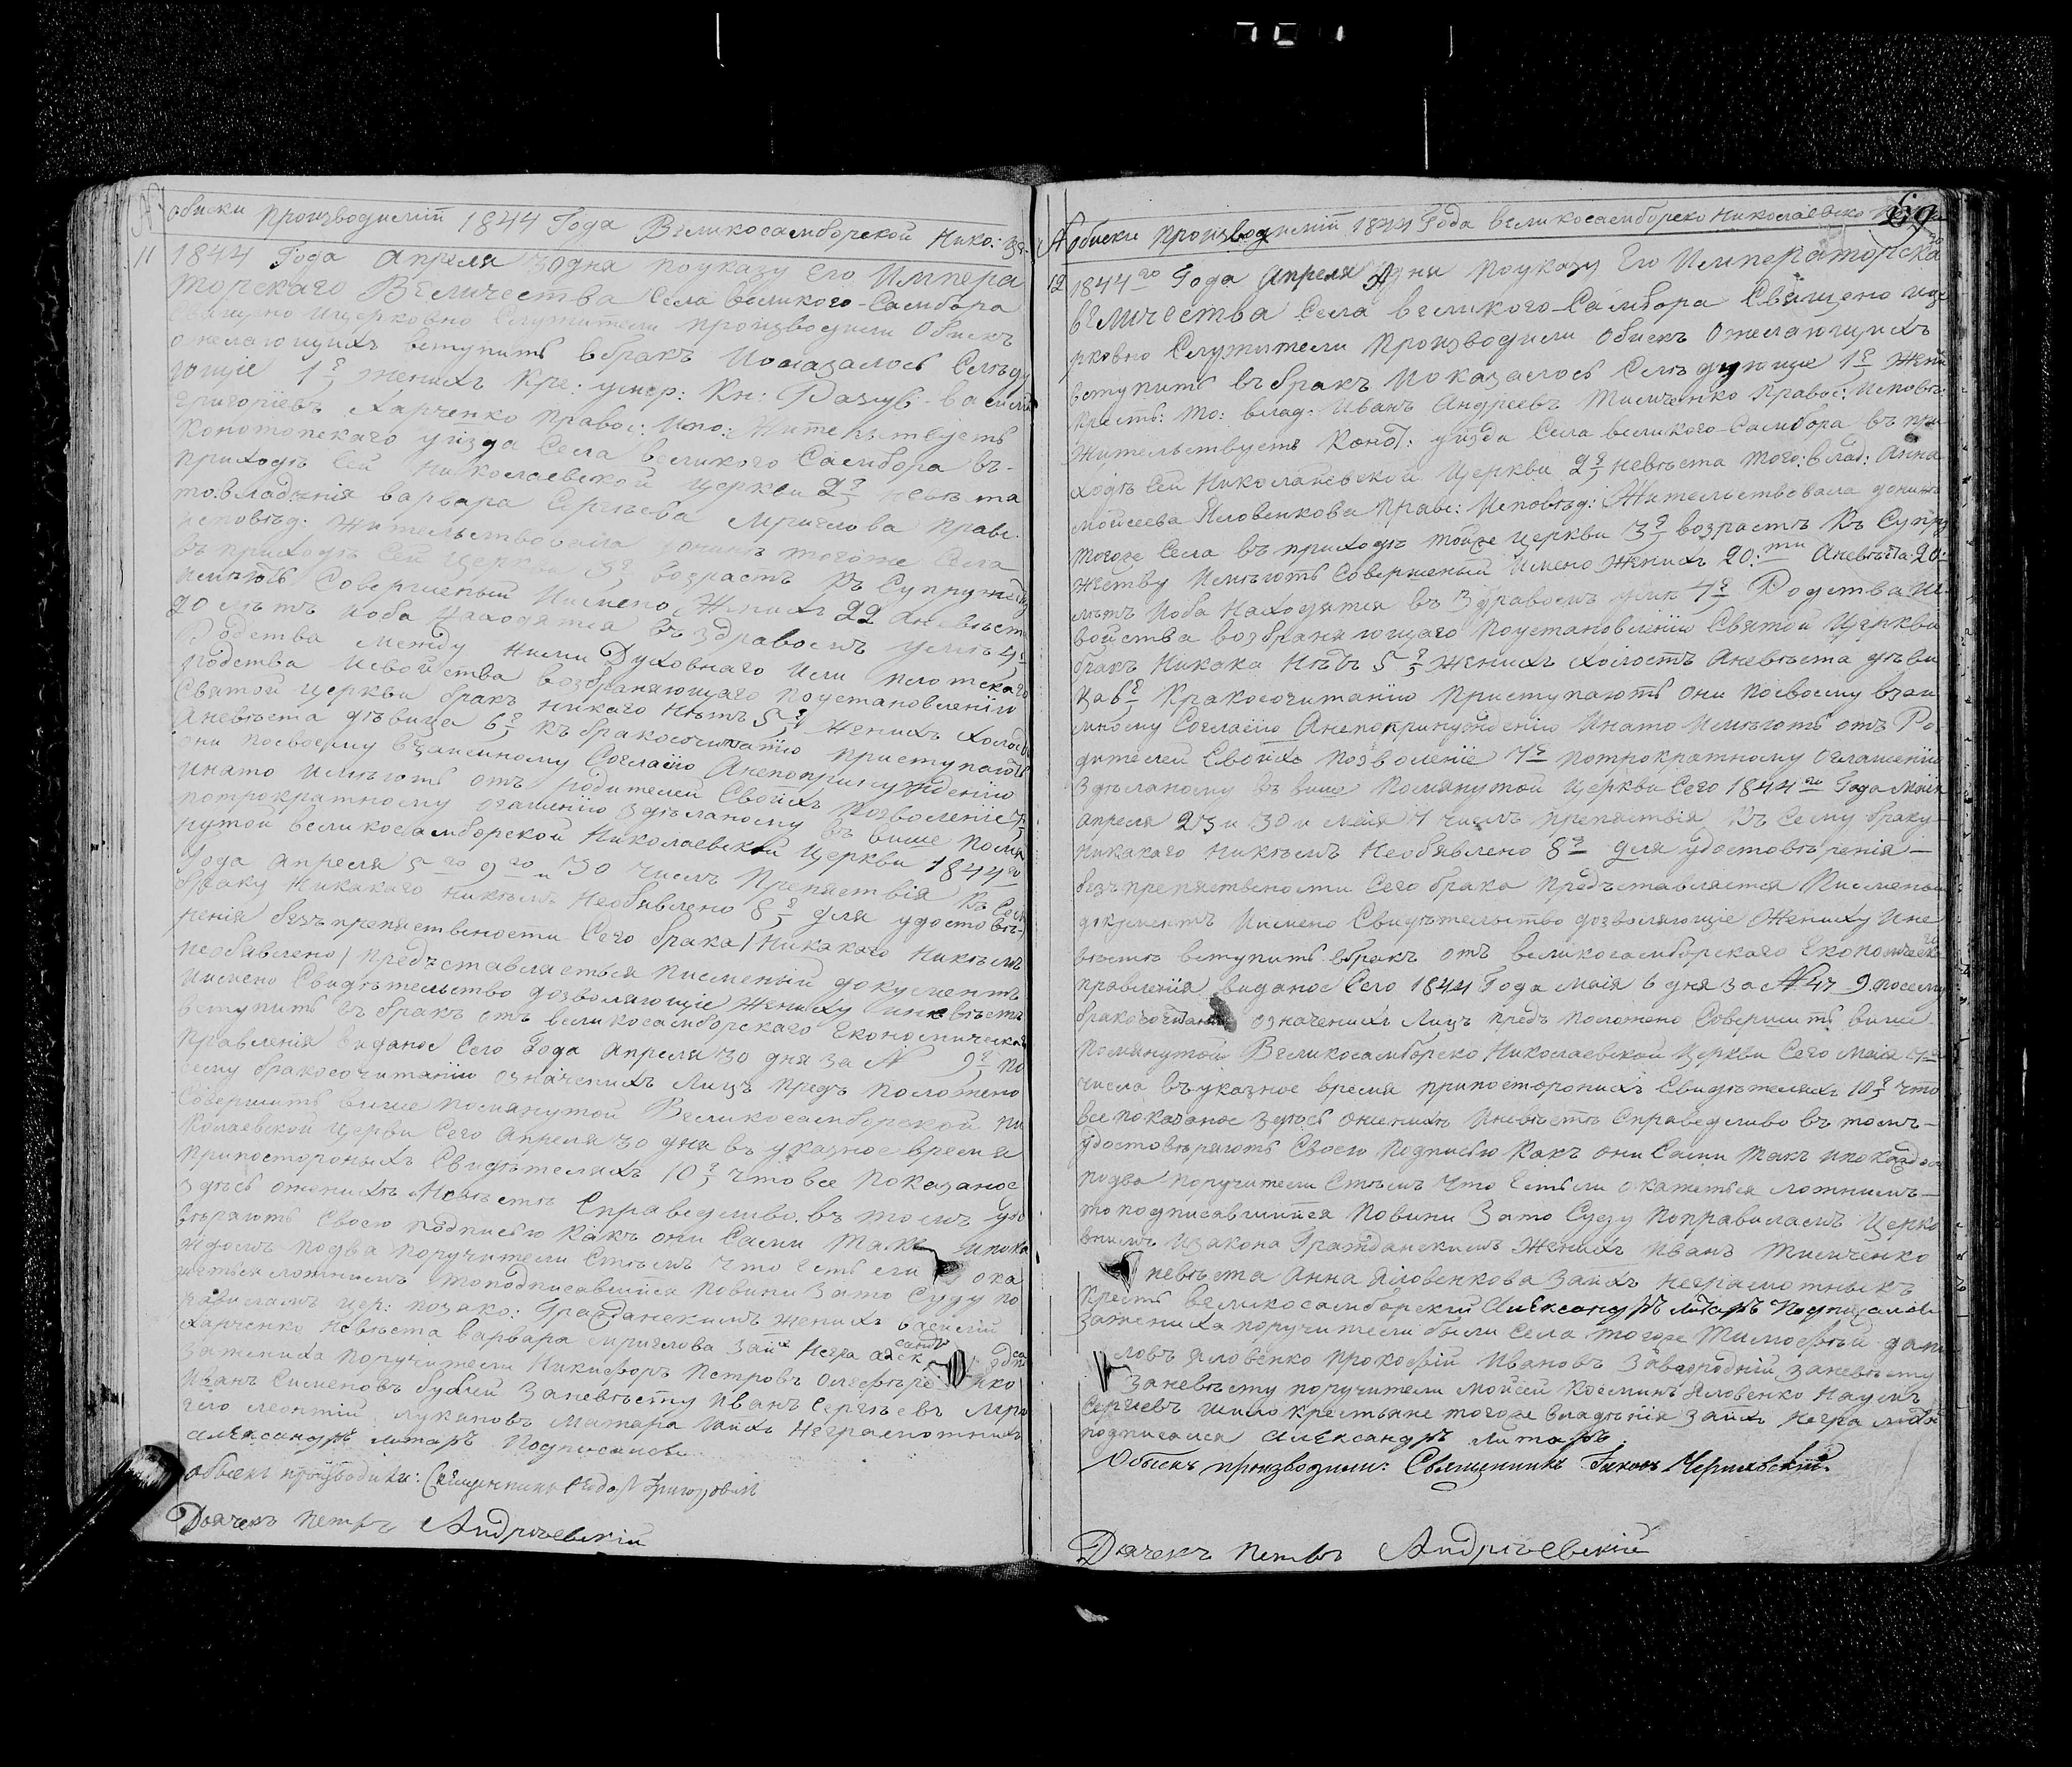 № обиски производимiй 1844 Года Великосамборской Нико:
11 1844 Года Апреля 30 дня поуказу Его Импера
торскаго Величества Села Великого-Самбора
Священо ицерковно Служители производили Обискъ
ожелающихъ вступить вбракъ Ипоказалось Слѣду
ющіе 1е женихъ Кре: умер: Кн: Разум: василій
григоріевъ Харченко Правос: Испо: Жительствуетъ
Конотопскаго уизда Села великого Самбора въ-
приходѣ Сей николаевской церкви 2е невѣста
то: владѣнія варвара Сергѣева Мриглова Правс.
исповѣд: жительствовала донинѣ тогоже Села
въ приходѣ Сей Церкви 3е возрастъ Къ Супружеству
имѣютъ Совершеный Имено Женихъ 22 Аневѣста
20 лѣтъ иоба Находятся въ здравомъ умѣ 4е
Родства между ними Духовнаго Или плотскаго
родства исвойства возбраняющаго поустановленію
Святой церкви бракъ никаго нѣтъ 5е Женихъ холостъ
Аневѣста дѣвица 6е къ бракосочитанію приступаютъ
они посвоему взаимному Согласію Анепопринуждению
инато имѣютъ отъ родителей Своихъ позволеніе 7е
потрократному огашенію здѣланому въ више помя
нутой великосамборской Николаевской Церкви 1844го
Года апреля 5го 9го и 30 числъ Препяствія Къ Сему
браку Никакаго никѣмъ Необявлено 8е для удостовѣ-
ренія безъпрепяствености Сего брака / Никакаго Никѣмъ
необявлено / предъставляеться писменый документъ
Имено Свидѣтельство дозволяющіе Жениху иневѣстѣ
вступить въ бракъ отъ великосамборскаго Економическаго
Правленія виданое Сего Года Апреля 30 дня за № 9е по
сему бракосочитанію означенихъ Лицъ предъ положено
Совершить вишепомянутой Великосамборской Ни
колаевской церви Сего Апреля 30 дня въ указное время
припостороныхъ Свидѣтеляхъ 10е Что все Показаное
здѣсь оженихѣ Иневѣстѣ Справедливо въ томъ удо
вѣряютъ Своею подписью Какъ они Сами Такъ ипока
ждомъ подва поручители Стѣмъ Что Есть ели ока
жеться ложнимъ Топодписавшійся повини Зато Суду по
правиламъ цер: позако: Гражданскимъ женихъ василій
Харченко Невѣста варвара Мриглова
зажениха поручители Никифоръ Петровъ
Иванъ Сименовъ бублей Заневѣсту Иванъ Сергѣевъ Мри
гело леонтій Лукановъ Матара заихъ Неграмотнихъ
александръ литаръ Подписалсь
обыскъ производили: Священникъ Ѳедоръ Григоровичъ
Дьячекъ петръ Андріевскій
69
№ обиски производимiй 1844 Года великосамборско николаевско
12 1844го Года Апреля дня поуказу Его Императорска
величества Села великого-Самбора Священо ице
рковно Служители Производили Обискъ Ожелающихъ
вступить въ бракъ Ипоказалось Слѣдующие 1е Жени
Кресть: то: влад: Иванъ Андреевъ Тимченко Правос: Исповѣ:
жительствуетъ Коно: уизда Села великого-Самбора въ при-
ходѣ Сей Николаиевской Церкви 2е невѣста того: влад: Анна
Мойсеева Яловенкова Правс: Исповѣд: Жительствовала донинѣ
тогоже Села въ приходѣ тойже церкви 3е возрастъ Къ Супру
жеству Имѣютъ Совершеный Имено Женихъ 20:ти Аневѣста 20:
лѣтъ Иоба Находятся въ Здравомъ 4е Родства Ис
войства возбраняющаго Поустановленію Святой Церкви
бракъ Никака Нѣтъ 5е Женихъ Холостъ Аневѣста дѣви
ца 6е Кракосочитанію приступаютъ они посвоему взаи
мному Согласію Анепопринужденію Инато Имѣютъ отъ Ро
дителей Своихъ позволеніе 7е потрократному оглашению
Здѣланому въ више Помянутой Церкви Сего 1844го Года маія
апреля 23 и 30 и маія 7 числъ препяствія Къ Сему браку
никакаго никѣмъ Необявлено 8е для удостовѣренія-
безъпрепяствености Сего брака предъставляется Писменый
документъ Имено Свидѣтельство дозволяющіе Жениху Ине
вѣстѣ вступить вбракъ отъ великосамборскаго Економическаго
правленія виданое Сего 1844 Года маія 6 дня за № 47 9. посему
бракосочитанію означенихъ Лицъ предъ положено Совершить више
Помянутой Великосамборско Николаевской Церкви Сего маія 7го
числа въ указное время припостороннихъ Свидѣтеляхъ 10е что
все показаное здѣсь оженихѣ Иневѣстѣ Справедливо въ томъ-
удостовѣряютъ Своею Подписью Какъ они Сами Такъ ипокаждом
подва поручители Стѣмъ Что Естьли окажеться ложнимъ-
топодписавшійся Повини Зато Суду поправиламъ Церко
внимъ Изакона Гражданскимъ Женихъ Иванъ Тимченко
невѣста Анна Яловенкова Заихъ неграмотныхъ
Кресть великосамборский Александръ литаръ Подписалсь
Зажениха поручители были Села тогоже Тимофѣй дани
ловъ Яловенко Прокофій Ивановъ Завгородній Заневѣсту
Заневѣсту поручители Мойсей Косминъ Яловенко Наумъ
Сергіевъ шило крестьяне тогоже владѣнія Заихъ Неграмотн
подписался Александръ литаръ
Обыскъ производили: Священникъ Чернявскій.
Дячекъ петръ Андріевскій